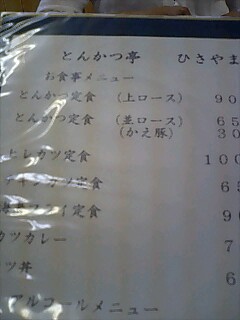 とんかつ亭 ひさやま
お食事メニュー
とんかつ定食 (上ロース) 90
とんかつ定食 (並ロース) 65
(かえ豚) 30
ヒレカツ定食 100
チキンカツ定食 65
フライ定食 90
カツカレー 7
ツ丼 6
アルコールメニュー